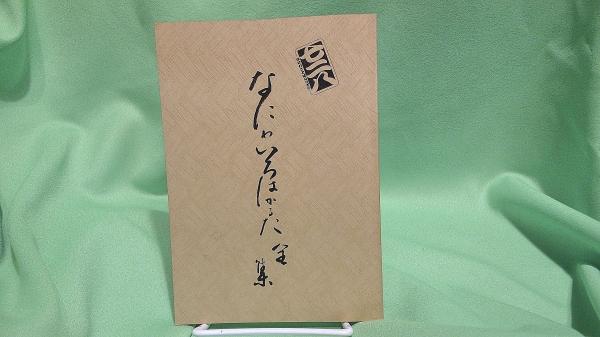 なにわいろはかるた全集